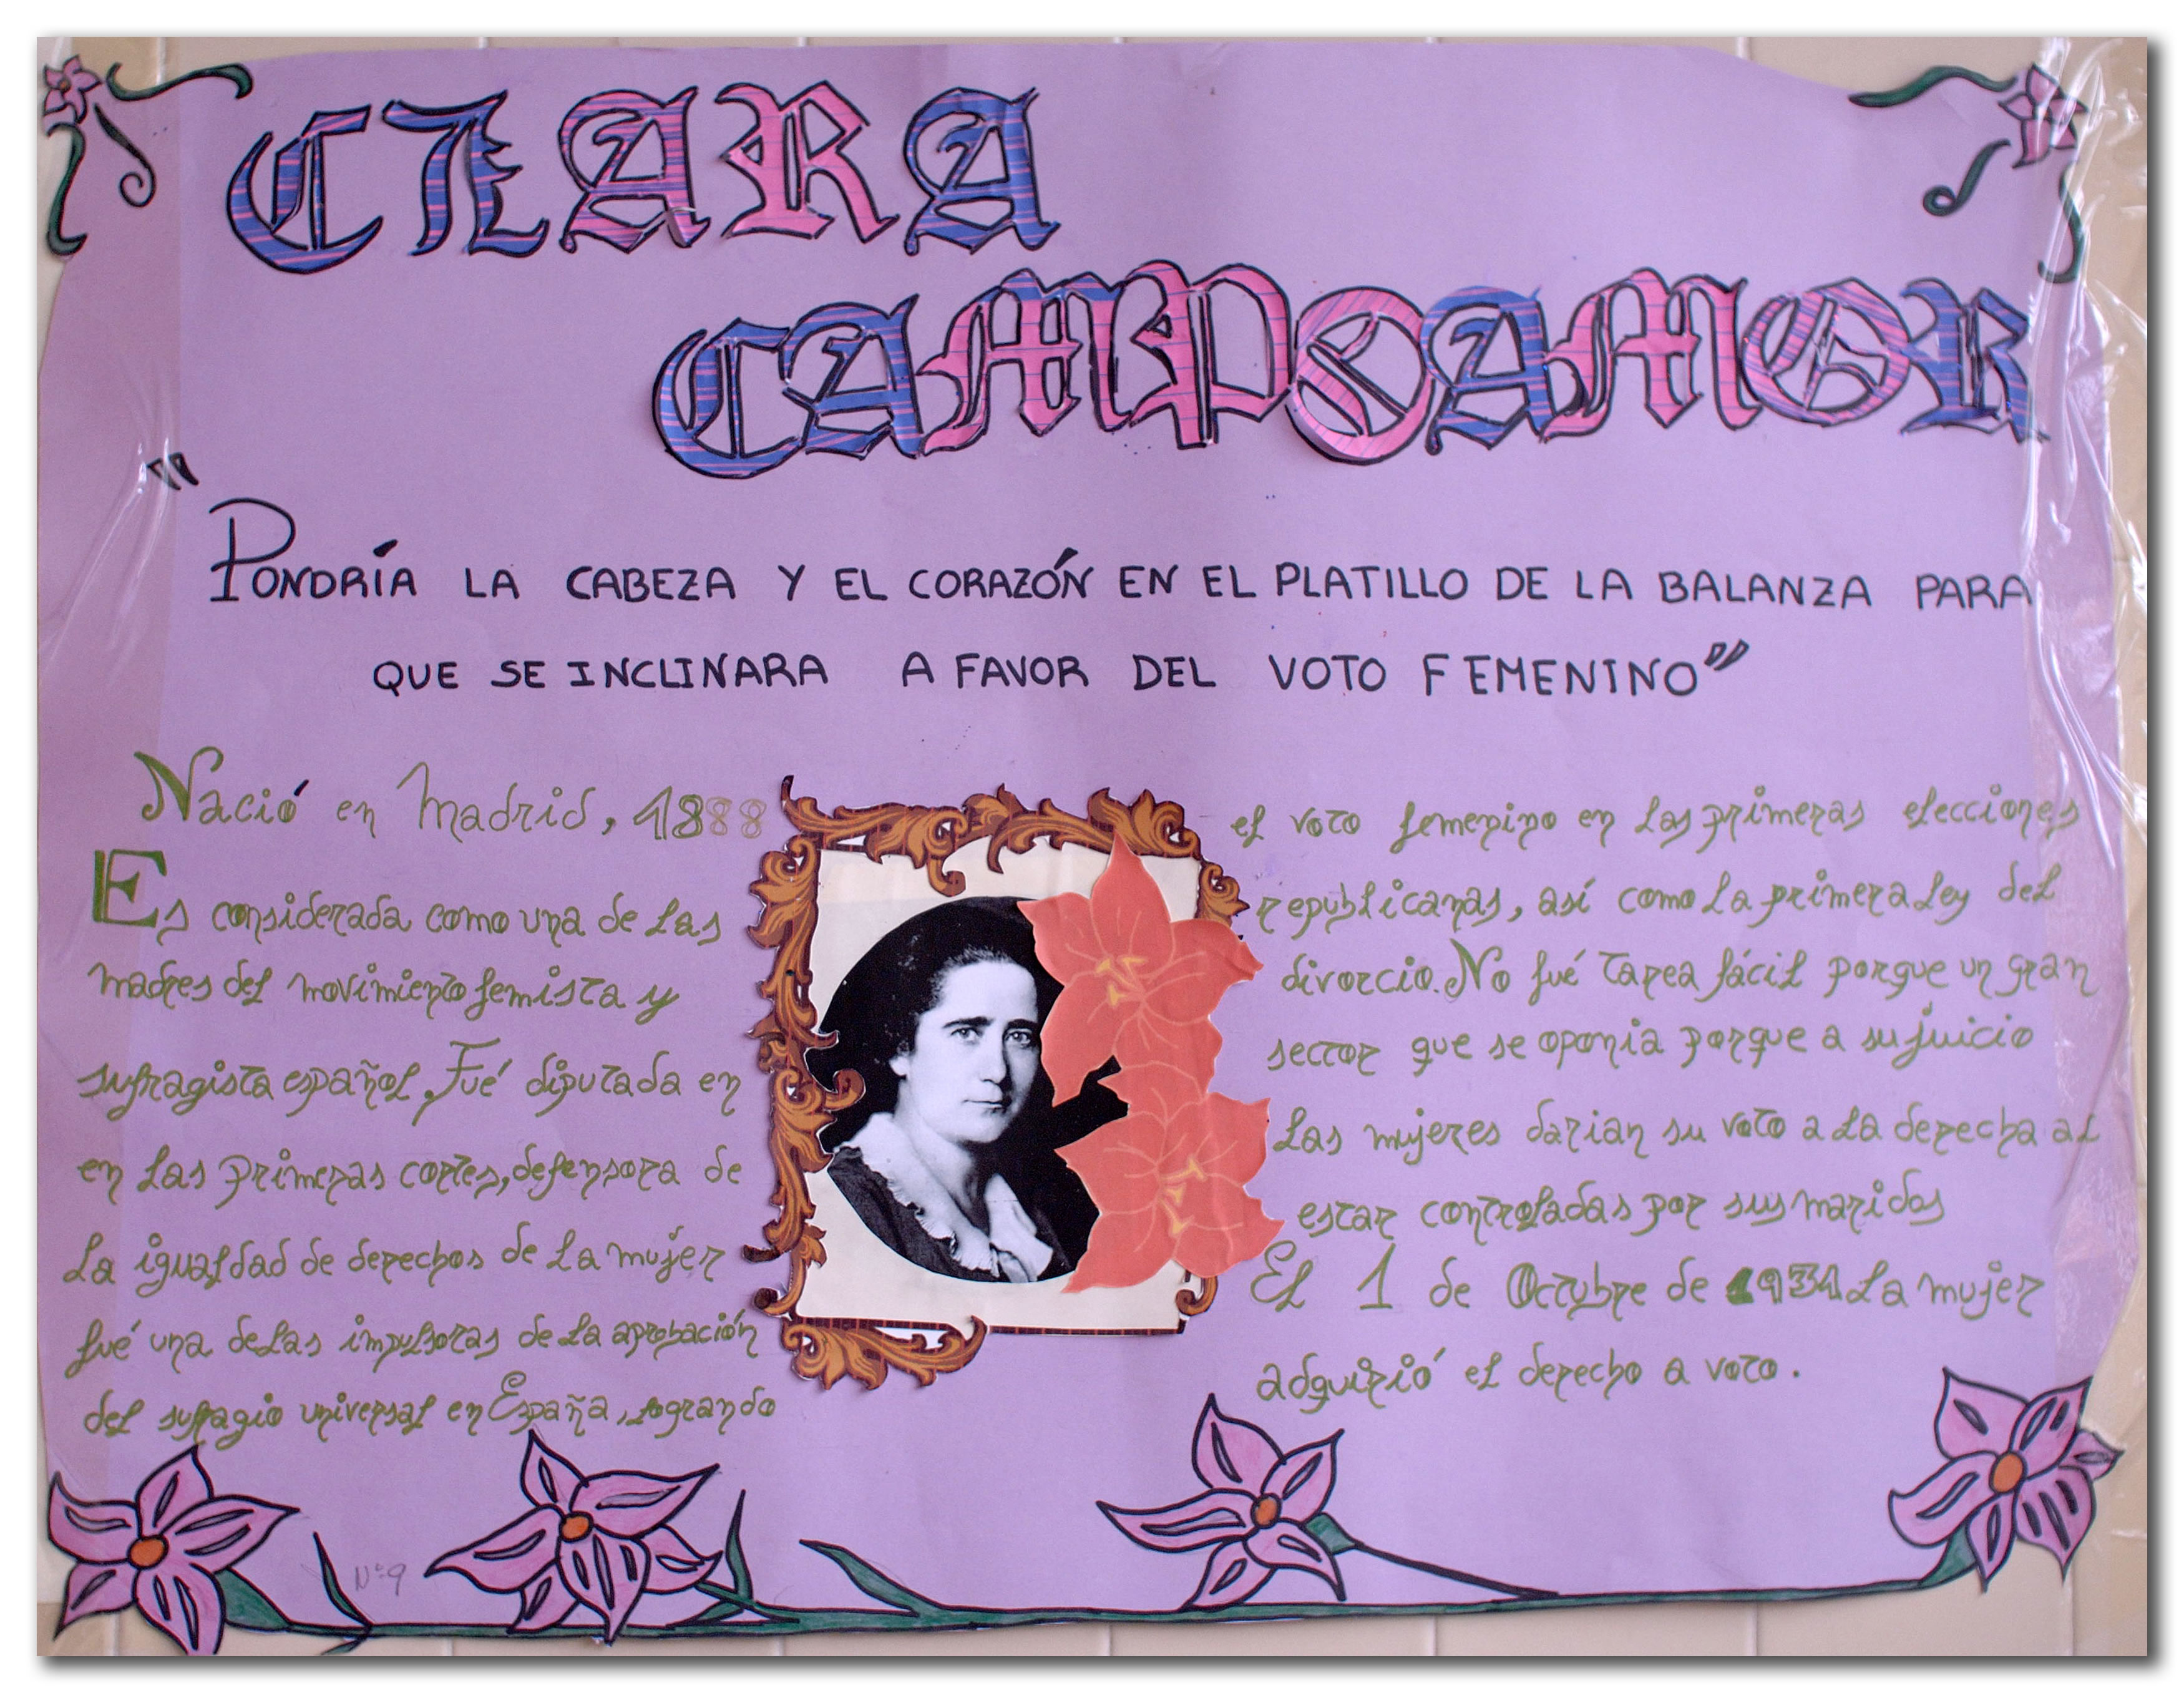 CLARA
CAMPOAMOR
"PONDRÍA LA CABEZA Y EL CORAZÓN EN EL PLATILLO DE LA BALANZA PARA
QUE SE INCLINARA A FAVOR DEL VOTO FEMENINO"
Nació en Madrid, 1888
Es considerada como una de las
madres del movimiento femista y
sufragista español. Fué diputada en
en las primeras cortes, defensora de
la igualdad de derechos de la mujer
fué una de las impulsoras de la aprobación
del sufragio universal en España, logrando
el voto femenino en las primeras elecciones
republicanas, así como la primera ley del
divorcio. No fué tarea fácil porque un gran
sector que se oponia porque a su juicio
las mujeres darian su voto a la derecha al
estar controladas por sus maridos
El 1 de Octubre de 1931 la mujer
adquirió el derecho a voto.
Nº9